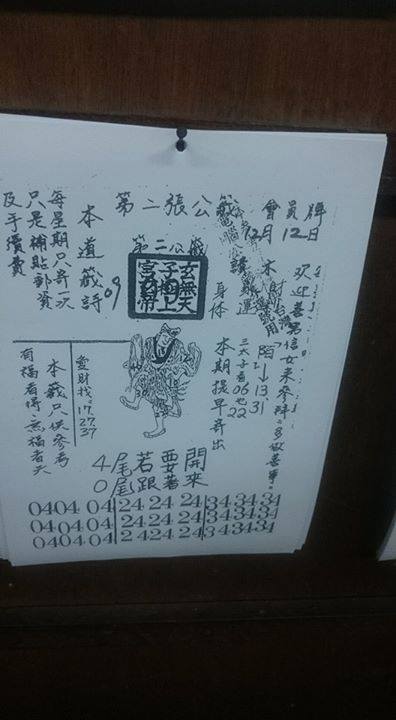 第二張公籤
會員牌
12月12日
欢迎善男信女来參拜
多做善事
13
31
三太子
06
22
身体
本期提早寄出
第二公籤
本道籤詩
09
每星期只寄一次
只是補貼郵資
及手續費
愛財找:17.27.37
本籤只供參考
有福者得 無福者失
4尾若要開
0尾跟著來
04 04 04 24 24 24 34 34 34
04 04 04 24 24 24 34 34 34
04 04 04 24 24 24 34 34 34